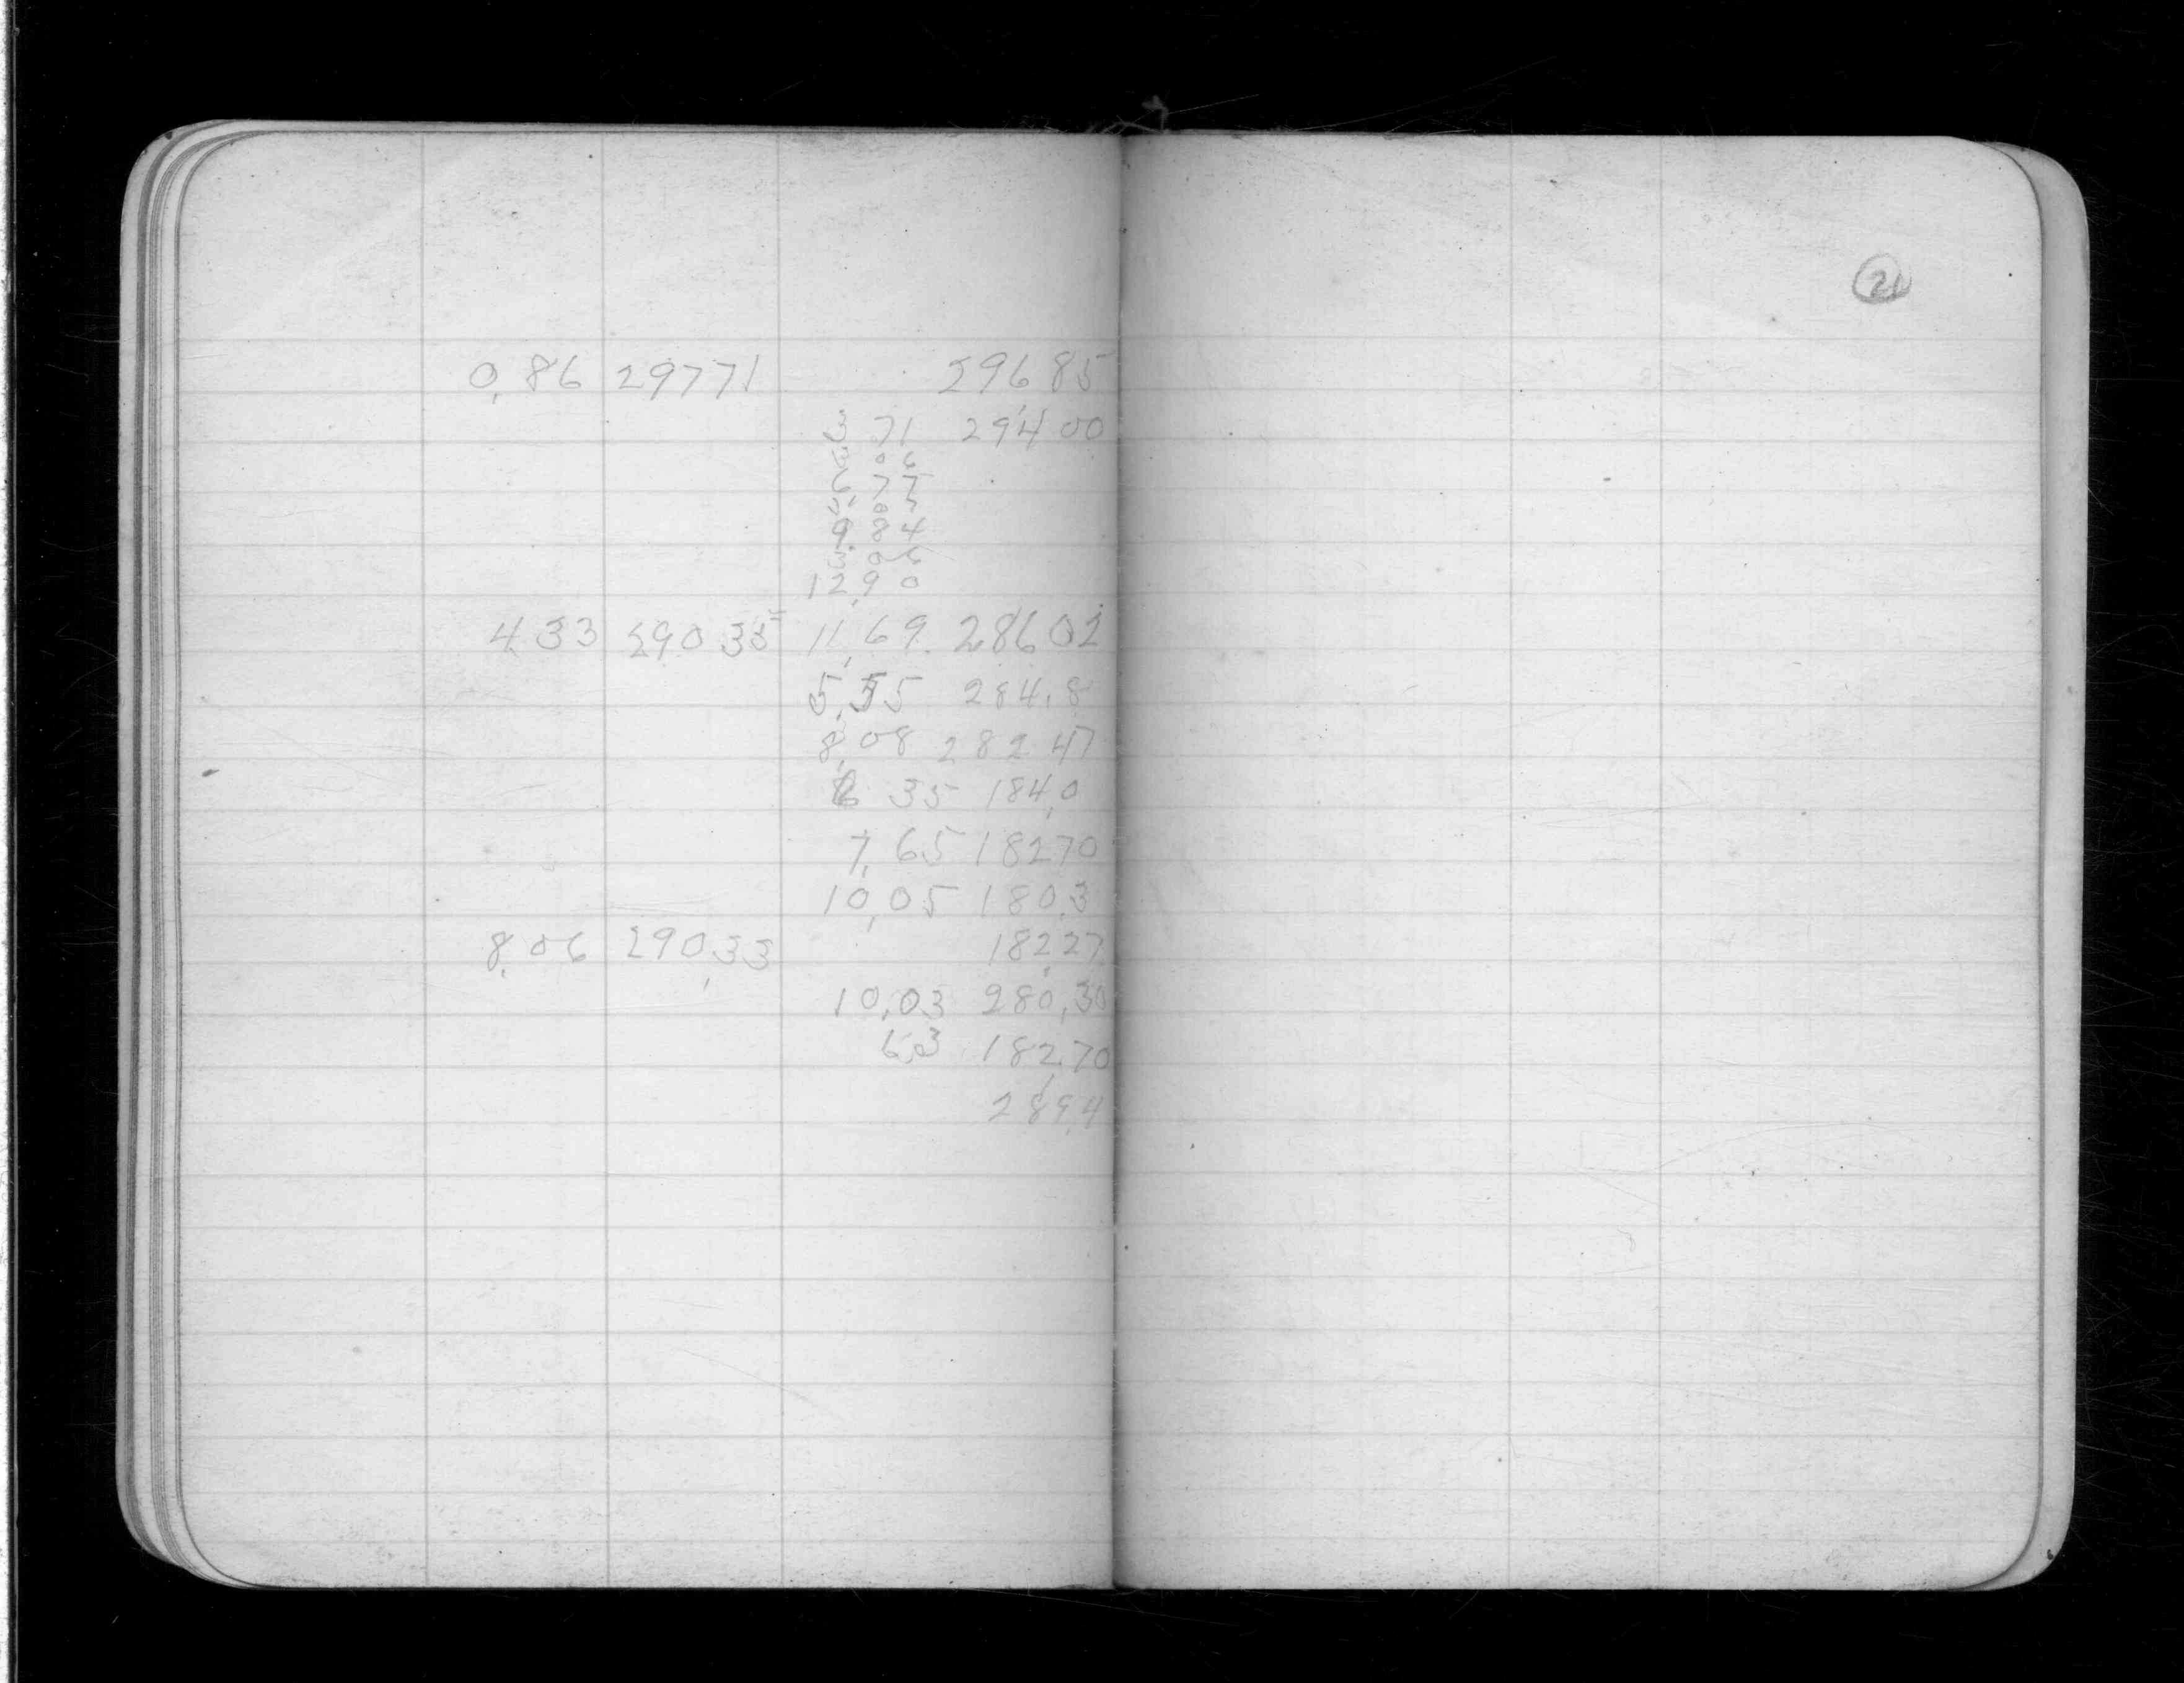 0.86 29771 296,85
3 71 294 00
3 06
6 77
3 07
9.84
3 06
12,90
4.33 290 35 11,69. 286 02
5,55 284.8
8,08 282 47
6 35 184,0
7,65 18270
10,05 180.3
8,06 290,33 182,27
10,03 280,30
6,3 182,70
289.4
21